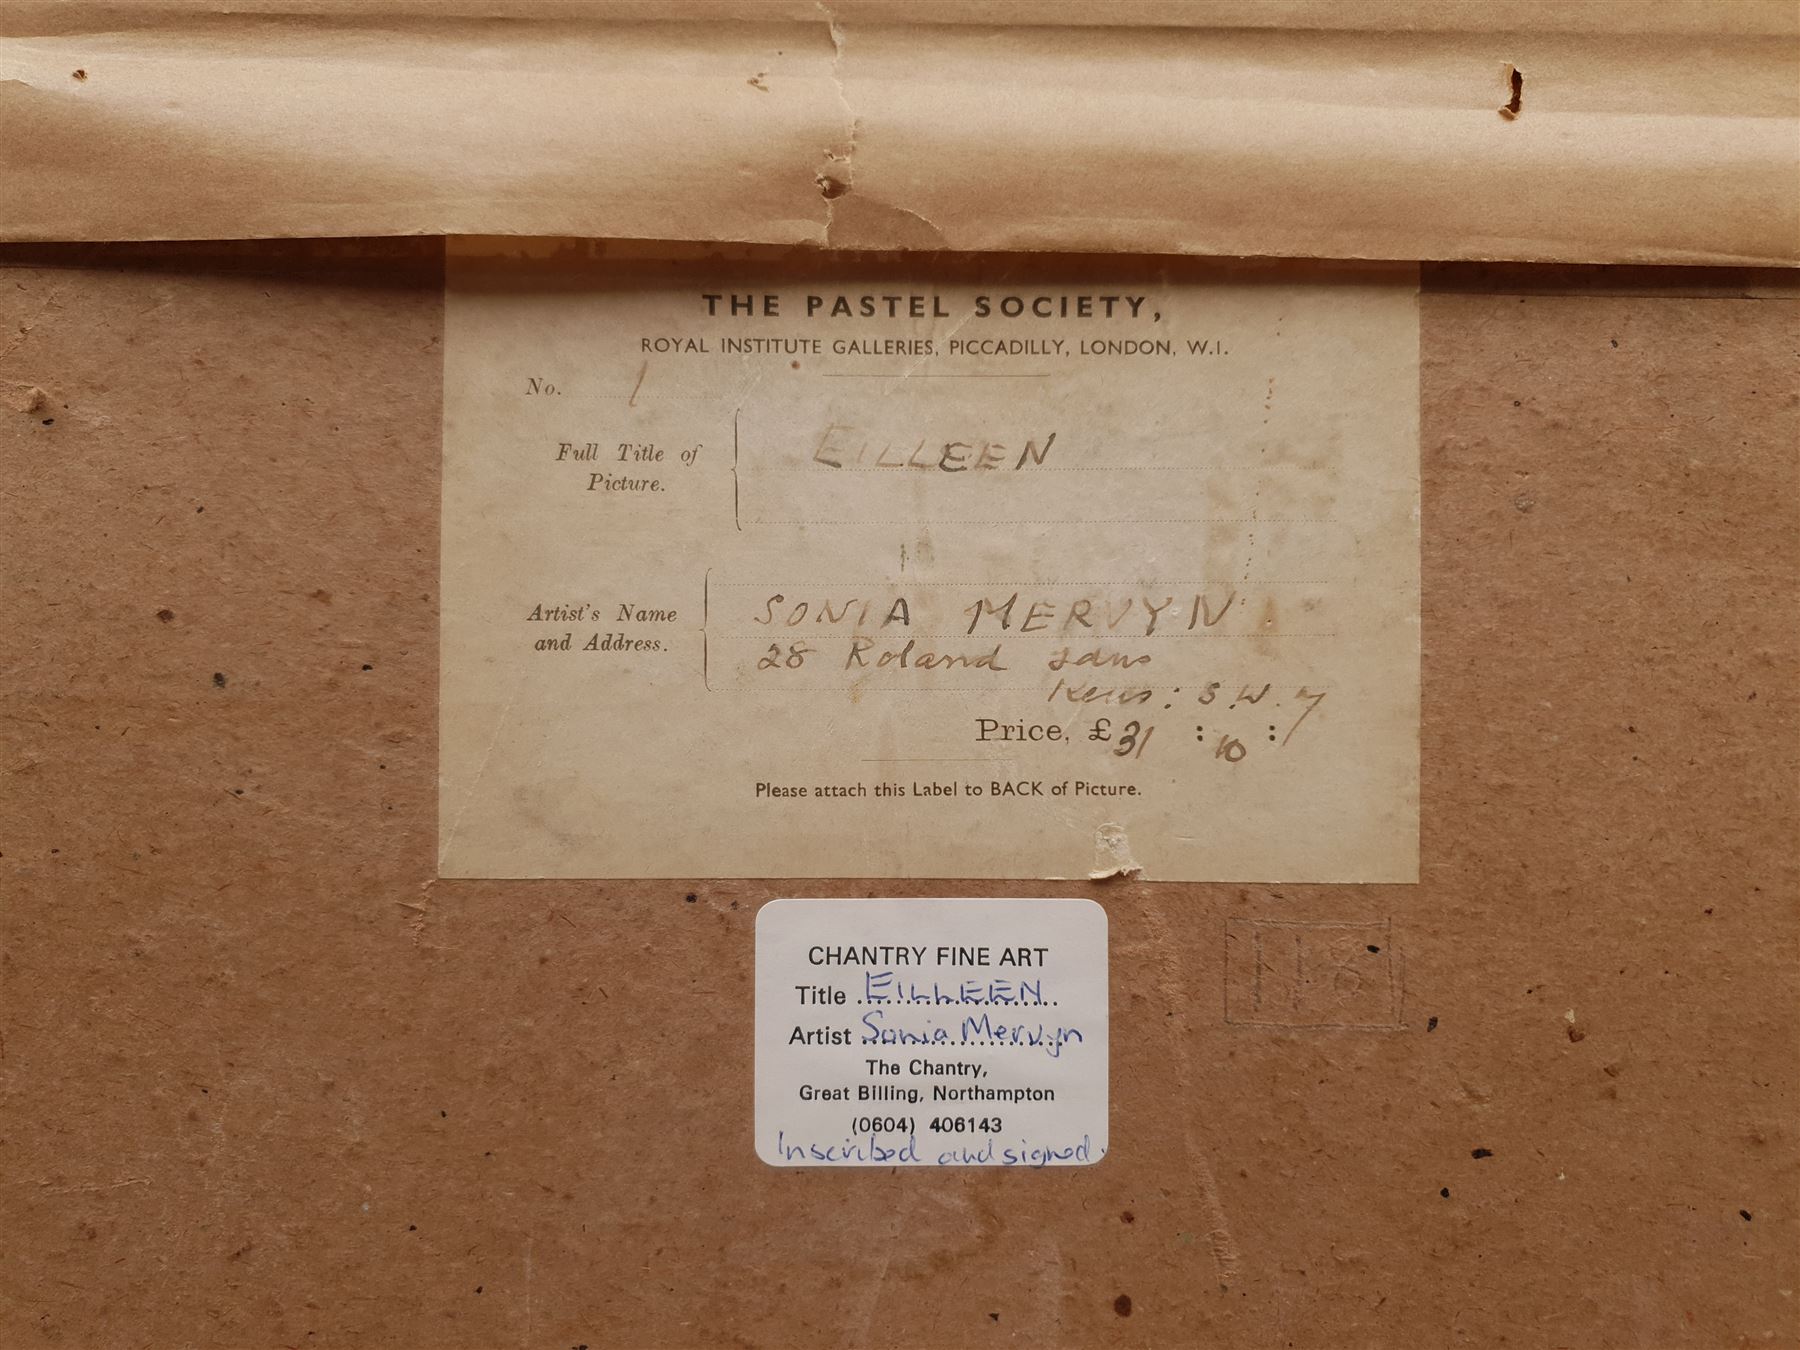 THE PASTEL SOCIETY,
ROYAL INSTITUTE GALLERIES, PICCADILLY, LONDON, W.I.
No. 1
Full Title of Picture.
EILLEEN
Artist's Name and Address.
SONIA MERVYN
28 Roland Gdns
Kens: S.W.7
Price, £31 : 10 :
Please attach this Label to BACK of Picture.
CHANTRY FINE ART
Title EILLEEN
Artist Sonia Mervyn
The Chantry,
Great Billing, Northampton
(0604) 406143
Inscribed and signed.